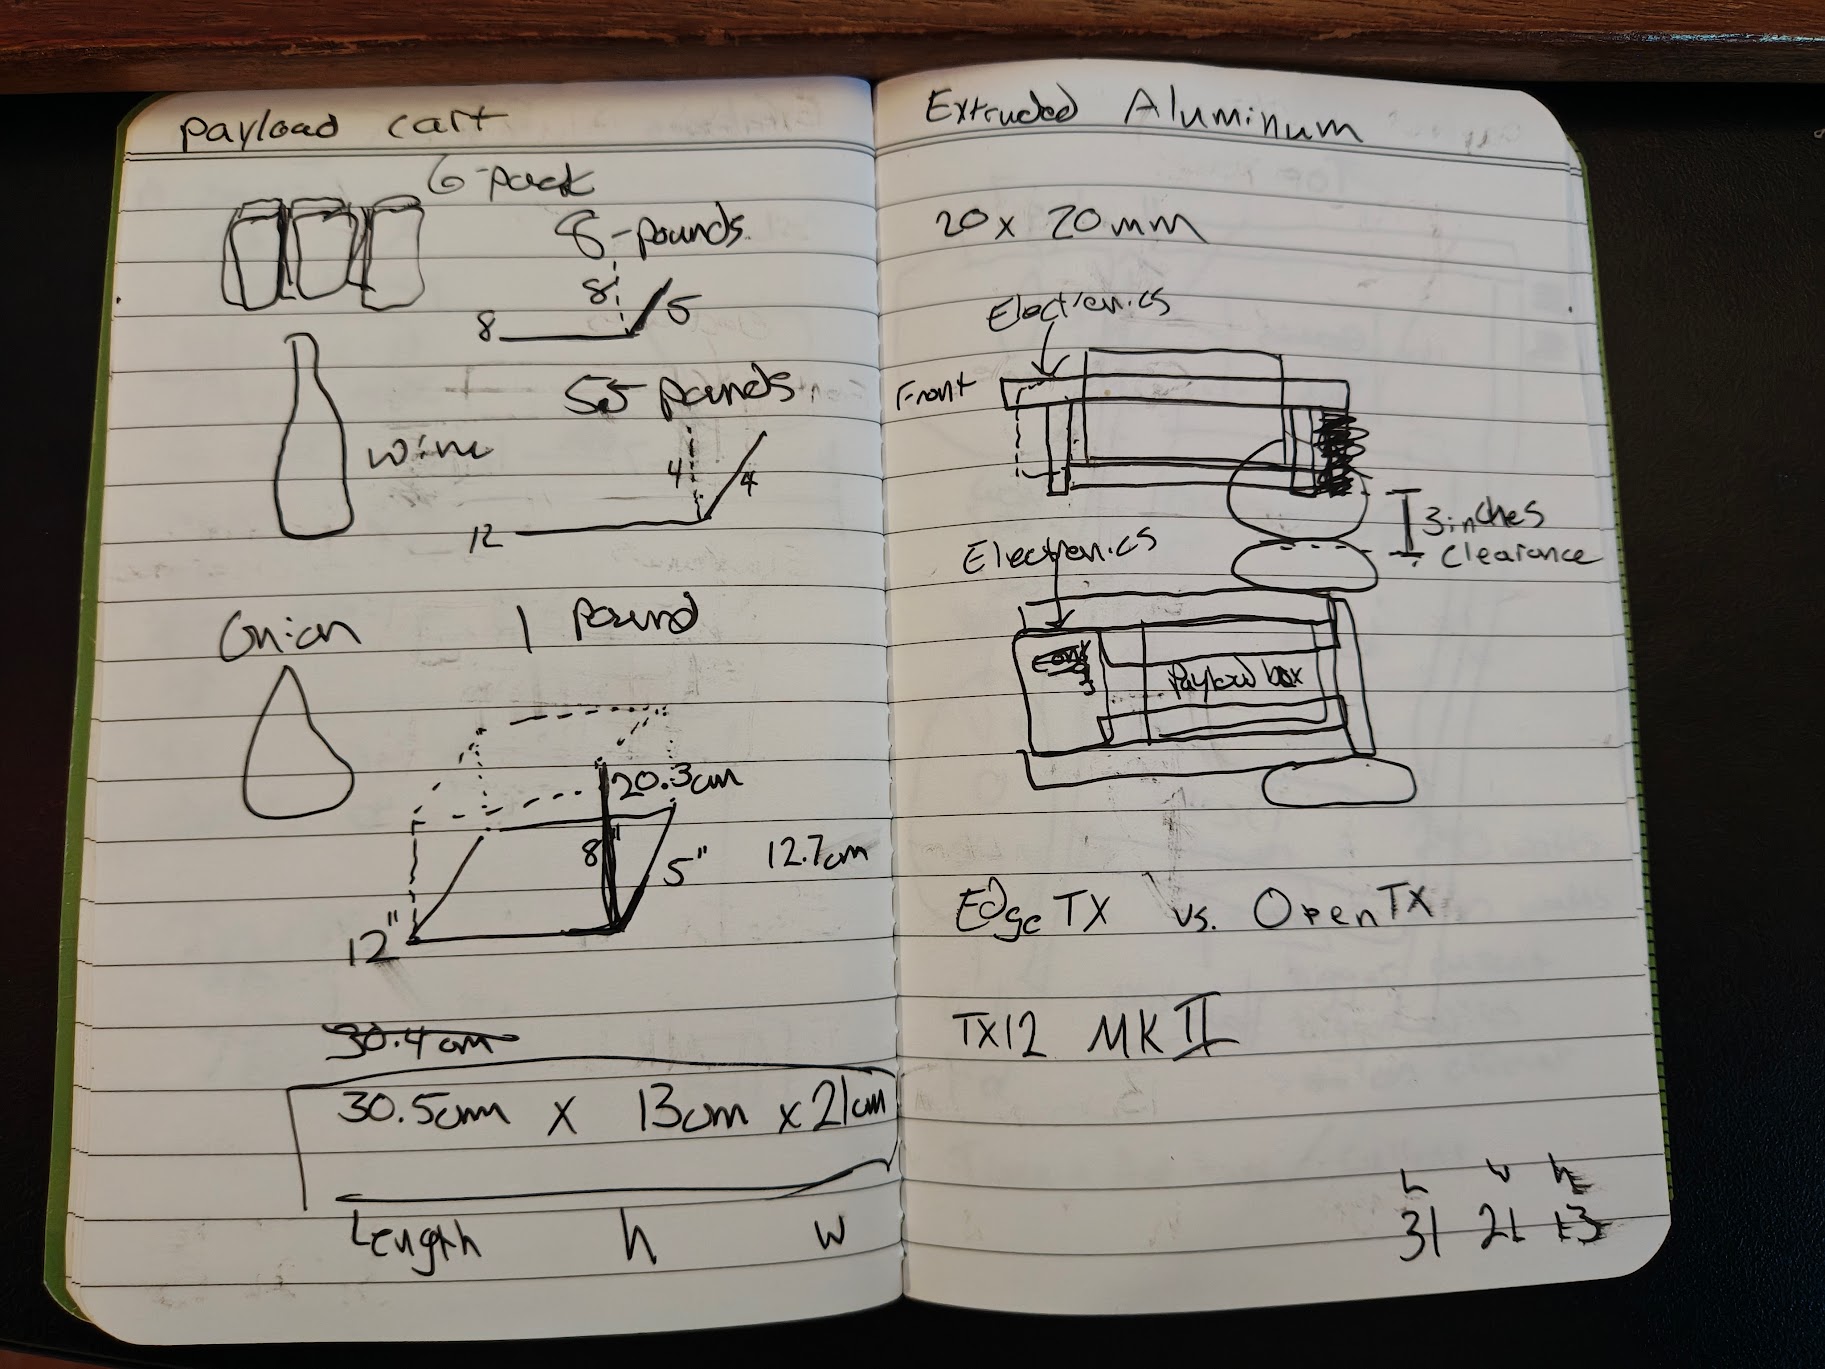 payload cart
6-pack
8-pounds
8
8
5
wine
55 pounds
4
4
12
Onion
1 pound
20.3cm
8"
5"
12.7cm
12"
30.4cm
30.5cm x 13cm x 21cm
Length h w
Extruded Aluminum
20 x 20mm
Electronics
Front
3 inches
clearance
Electronics
Payload box
EdgeTX vs. OpenTX
TX12 MK II
L w h
31 21 13